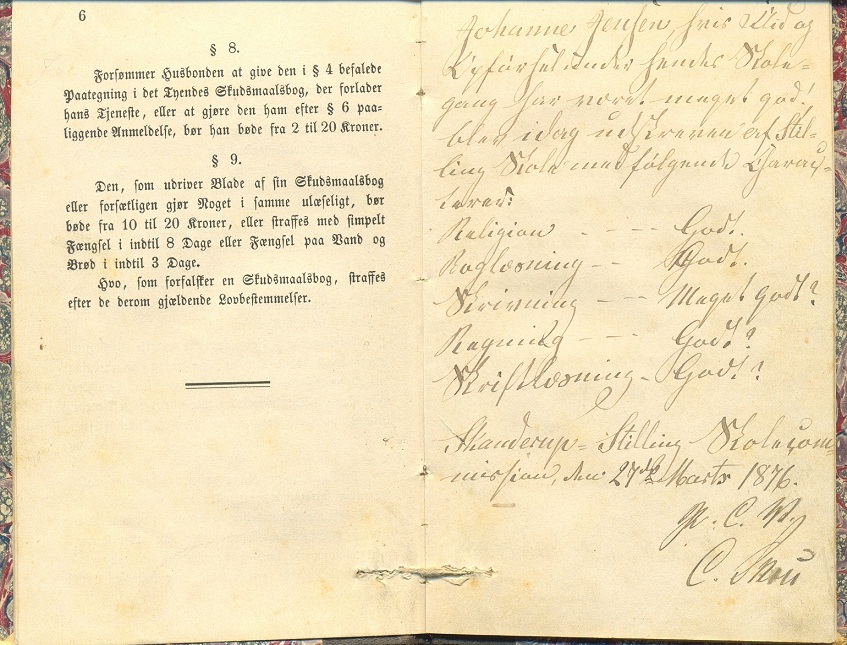 6
§ 8.
Forsømmer Husbonden at give den i § 4 befalede
Paategning i det Tyendes Skudsmaalsbog, der forlader
hans Tjeneste, eller at gjøre den ham efter § 6 paa-
liggende Anmeldelse, bør han bøde fra 2 til 20 Kroner.
§ 9.
Den, som udriver Blade af sin Skudsmaalsbog
eller forsætligen gjør Noget i samme ulæseligt, bør
bøde fra 10 til 20 Kroner, eller straffes med simpelt
Fængsel i indtil 8 Dage eller Fængsel paa Vand og
Brød i indtil 3 Dage.
Hvo, som forfalsker en Skudsmaalsbog, straffes
efter de derom gjældende Lovbestemmelser.
Johanne Jensen, hvis Flid og
Opførsel under hendes Skole-
gang har været meget god,
blev idag udskreven af Stil-
ling Skole med følgende Charac-
terer:
Religion - - - - Godt.
Boglæsning - - Godt.
Skrivning - - - Meget godt?
Regning - - - Godt?
Skriftlæsning - Godt?
Skanderup-Stilling Skolecom-
mission, den 27de Marts 1876.
C.